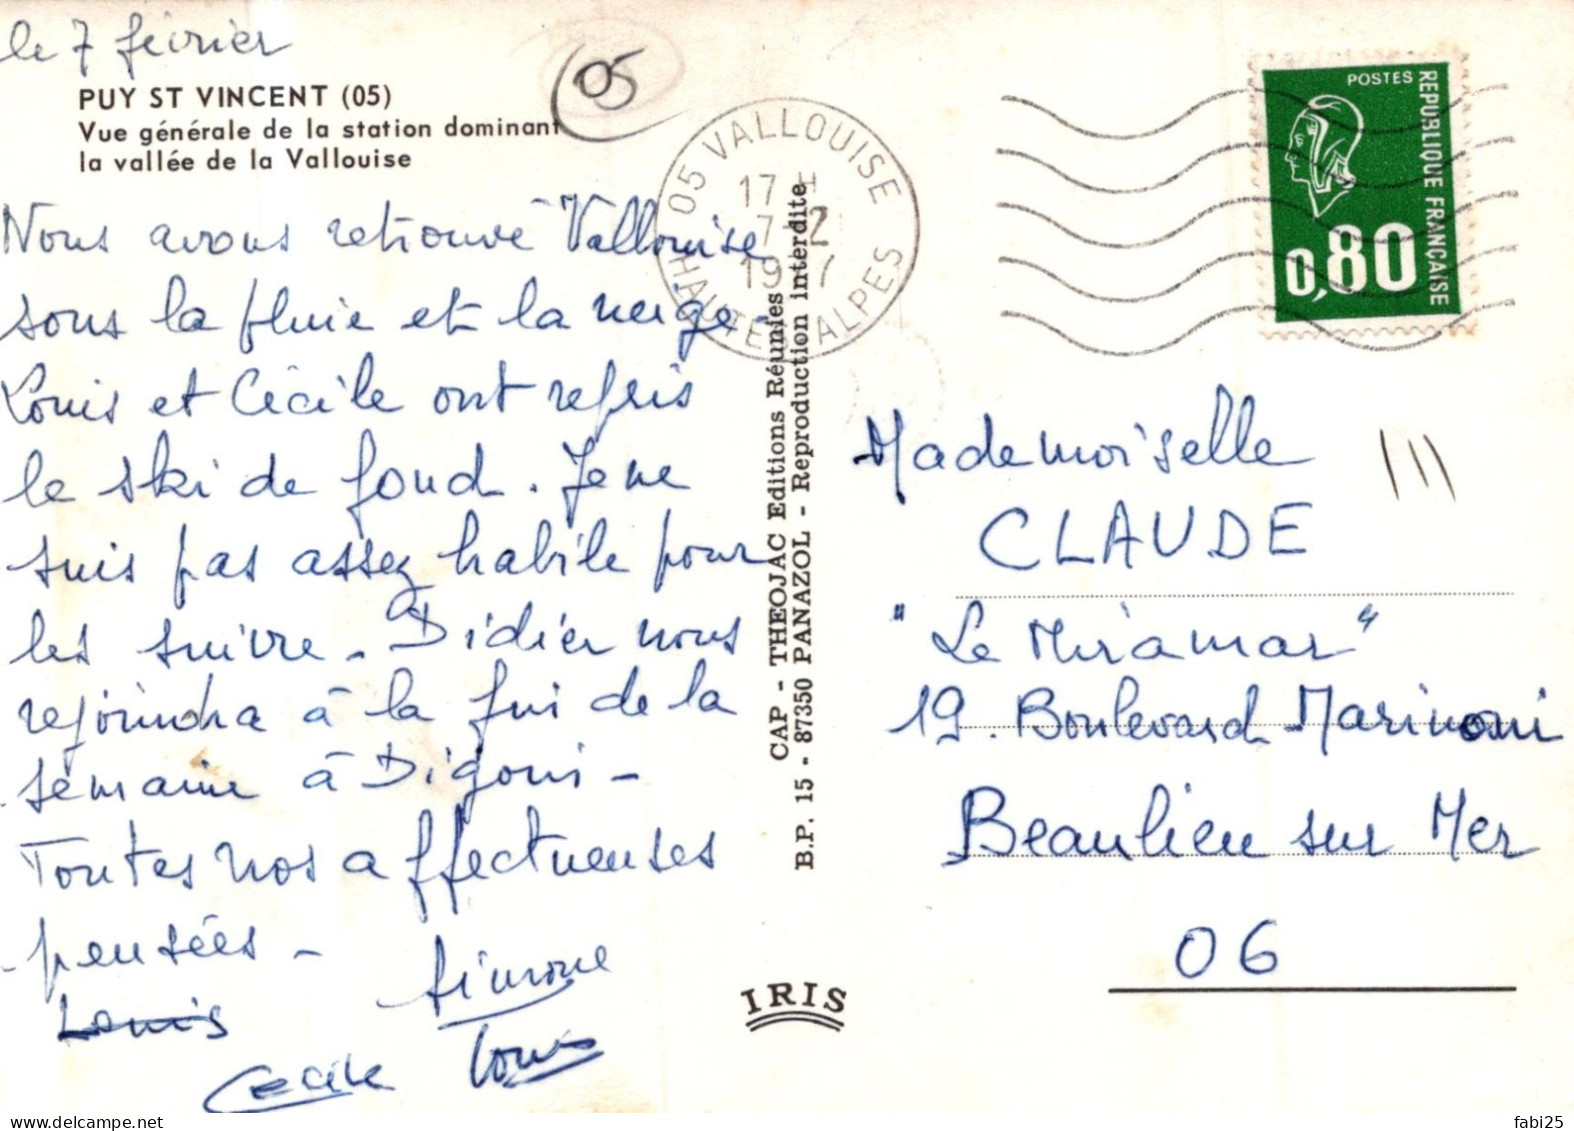 le 7 février
PUY ST VINCENT (05)
Vue générale de la station dominant
la vallée de la Vallouise
05
Nous avons retrouvé Vallouise
sous la pluie et la neige.
Louis et Cécile ont repris
le ski de fond. Je ne
suis pas assez habile pour
les suivre. Didier nous
rejoindra à la fin de la
semaine à
Toutes nos affectueuses
pensées -
Simone
Louis
Cécile Louis
05 VALLOUISE
17 H
7-2
19 7
HAUTES ALPES
CAP - THEOJAC Editions Réunies
B.P. 15 - 87350 PANAZOL - Reproduction interdite
IRIS
POSTES
REPUBLIQUE FRANÇAISE
0,80
Mademoiselle
CLAUDE
"Le Miramar"
19. Boulevard Marinoni
Beaulieu sur Mer
06
fabi25